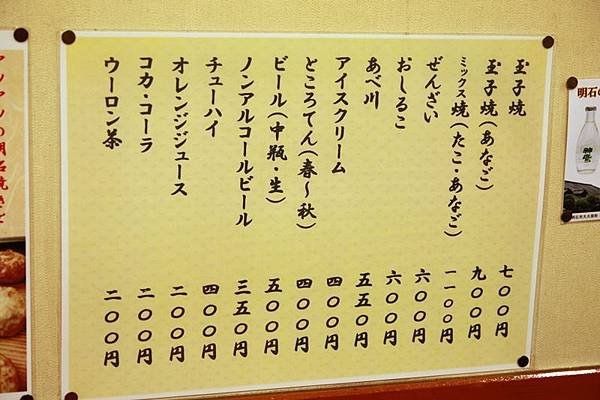 明石の
玉子焼 七〇〇円
玉子焼(あなご) 九〇〇円
ミックス焼(たこ・あなご) 一一〇〇円
ぜんざい 六〇〇円
おしるこ 六〇〇円
あべ川 五五〇円
アイスクリーム 四〇〇円
ところてん(春〜秋) 四〇〇円
ビール(中瓶・生) 五〇〇円
ノンアルコールビール 三五〇円
チューハイ 四〇〇円
オレンジジュース 二〇〇円
コカ・コーラ 二〇〇円
ウーロン茶 二〇〇円